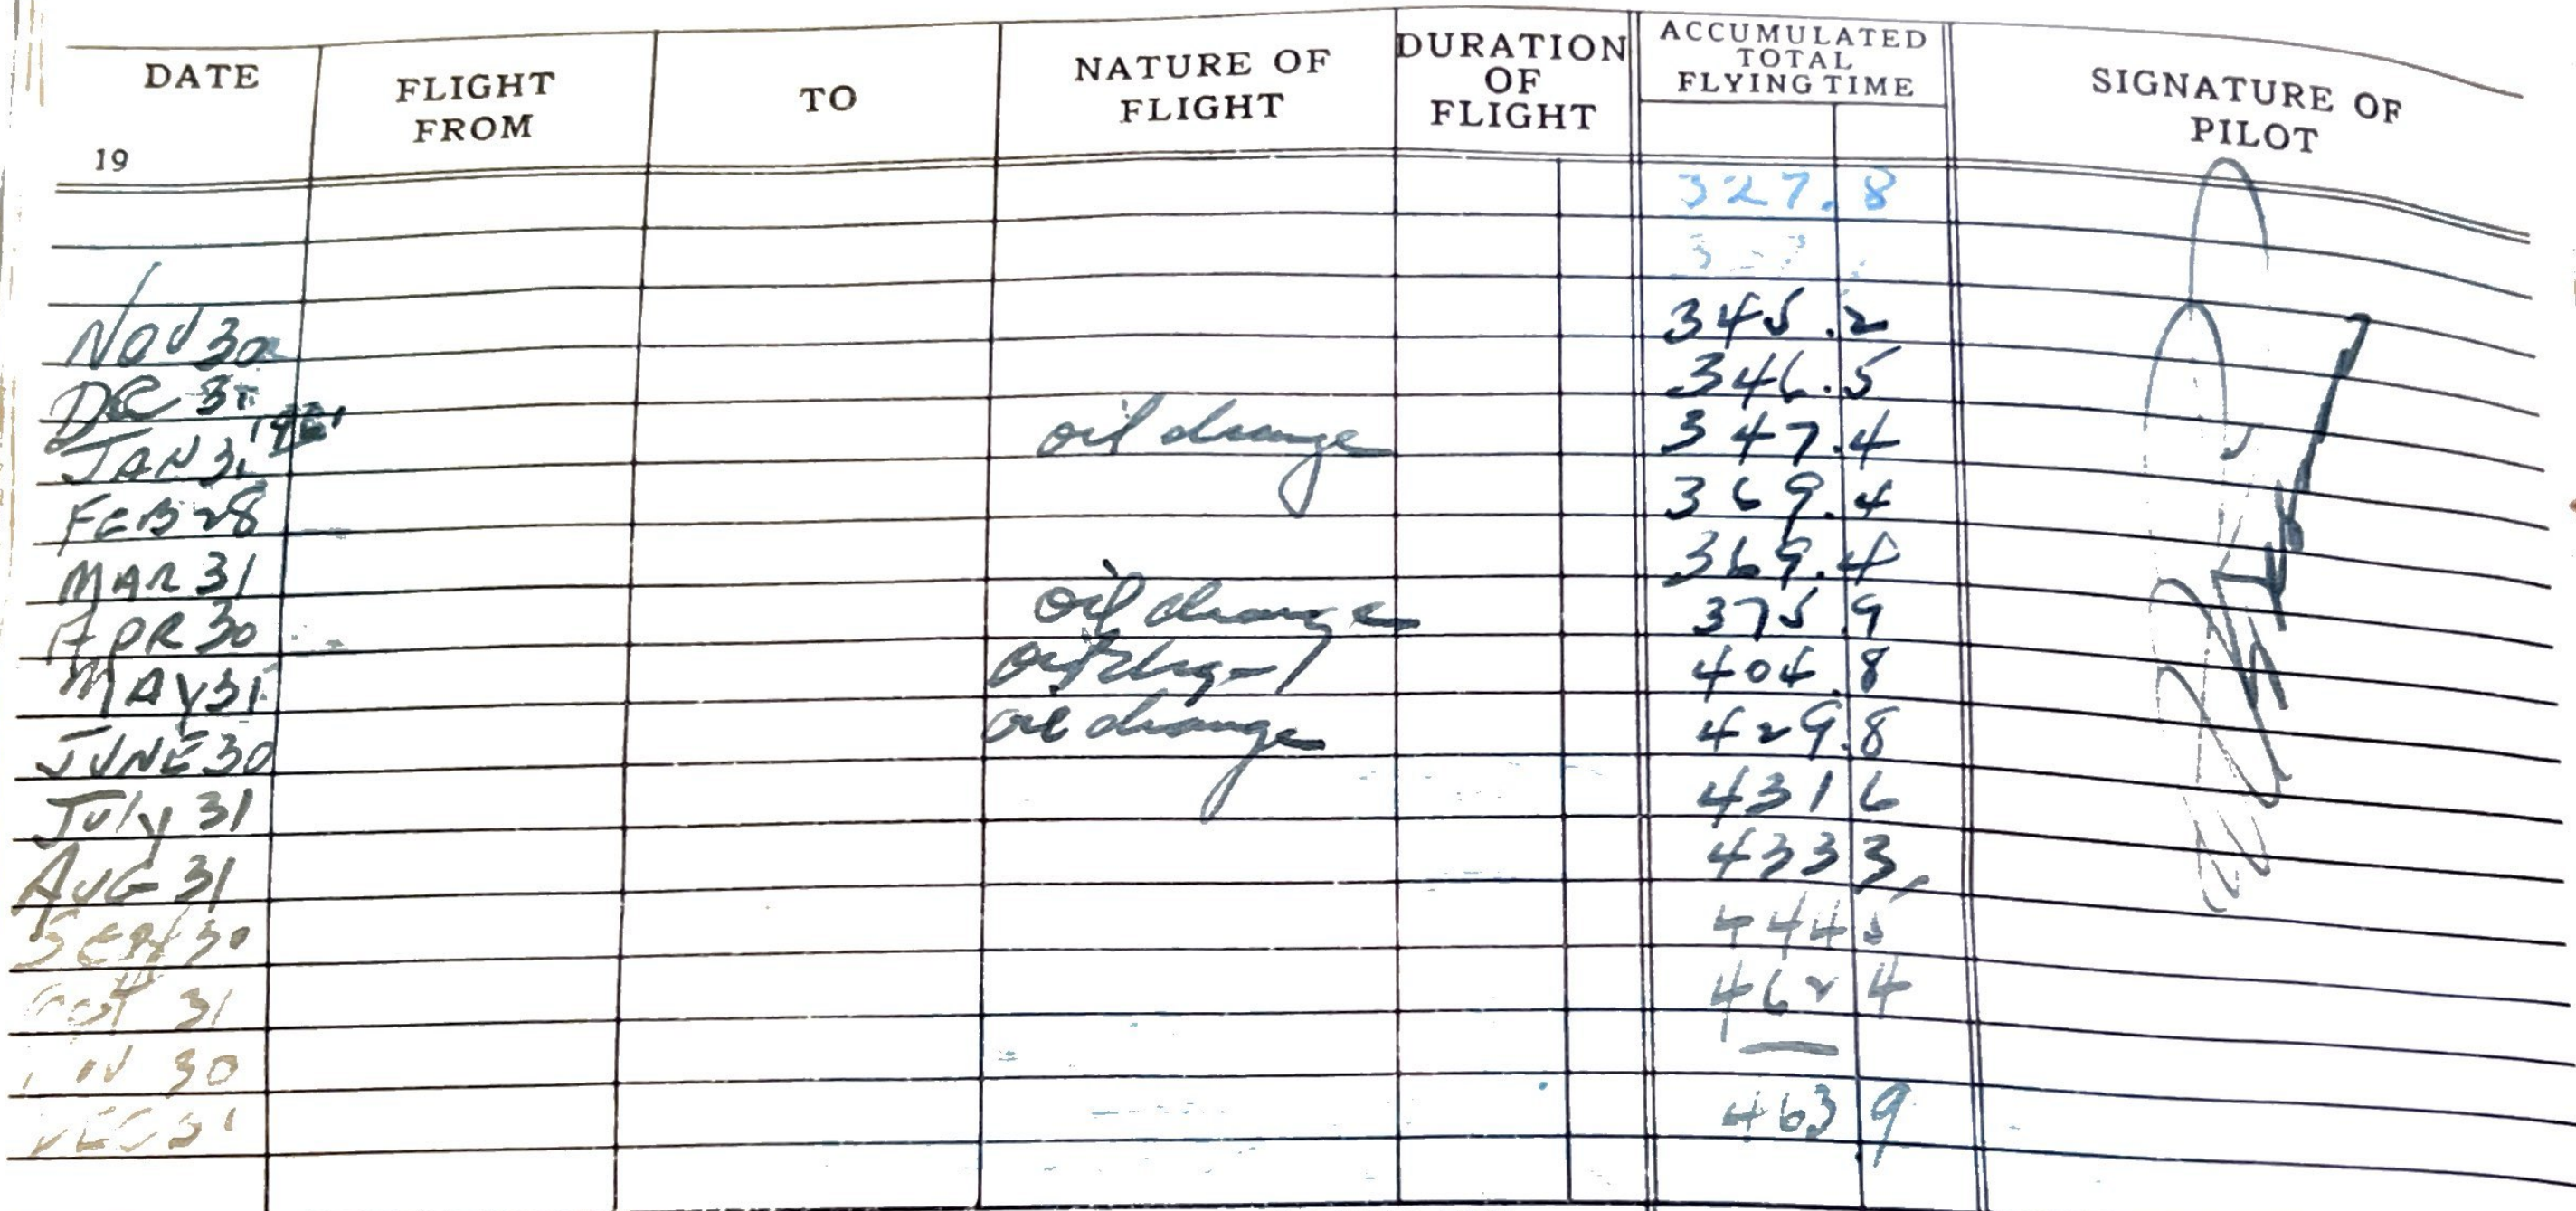 DATE FLIGHT FROM TO NATURE OF FLIGHT DURATION OF FLIGHT ACCUMULATED TOTAL FLYING TIME SIGNATURE OF PILOT
19
327.8
Nov 30 345.2
DEC 31 346.5
JAN 31 oil change 347.4
FEB 28 369.4
MAR 31 369.4
APR 30 oil change 375.9
MAY 31 404.8
JUNE 30 oil change 429.8
July 31 431 6
AUG 31 433 3
SEPT 30 444 5
OCT 31 462 4
30
DEC 31 463 9